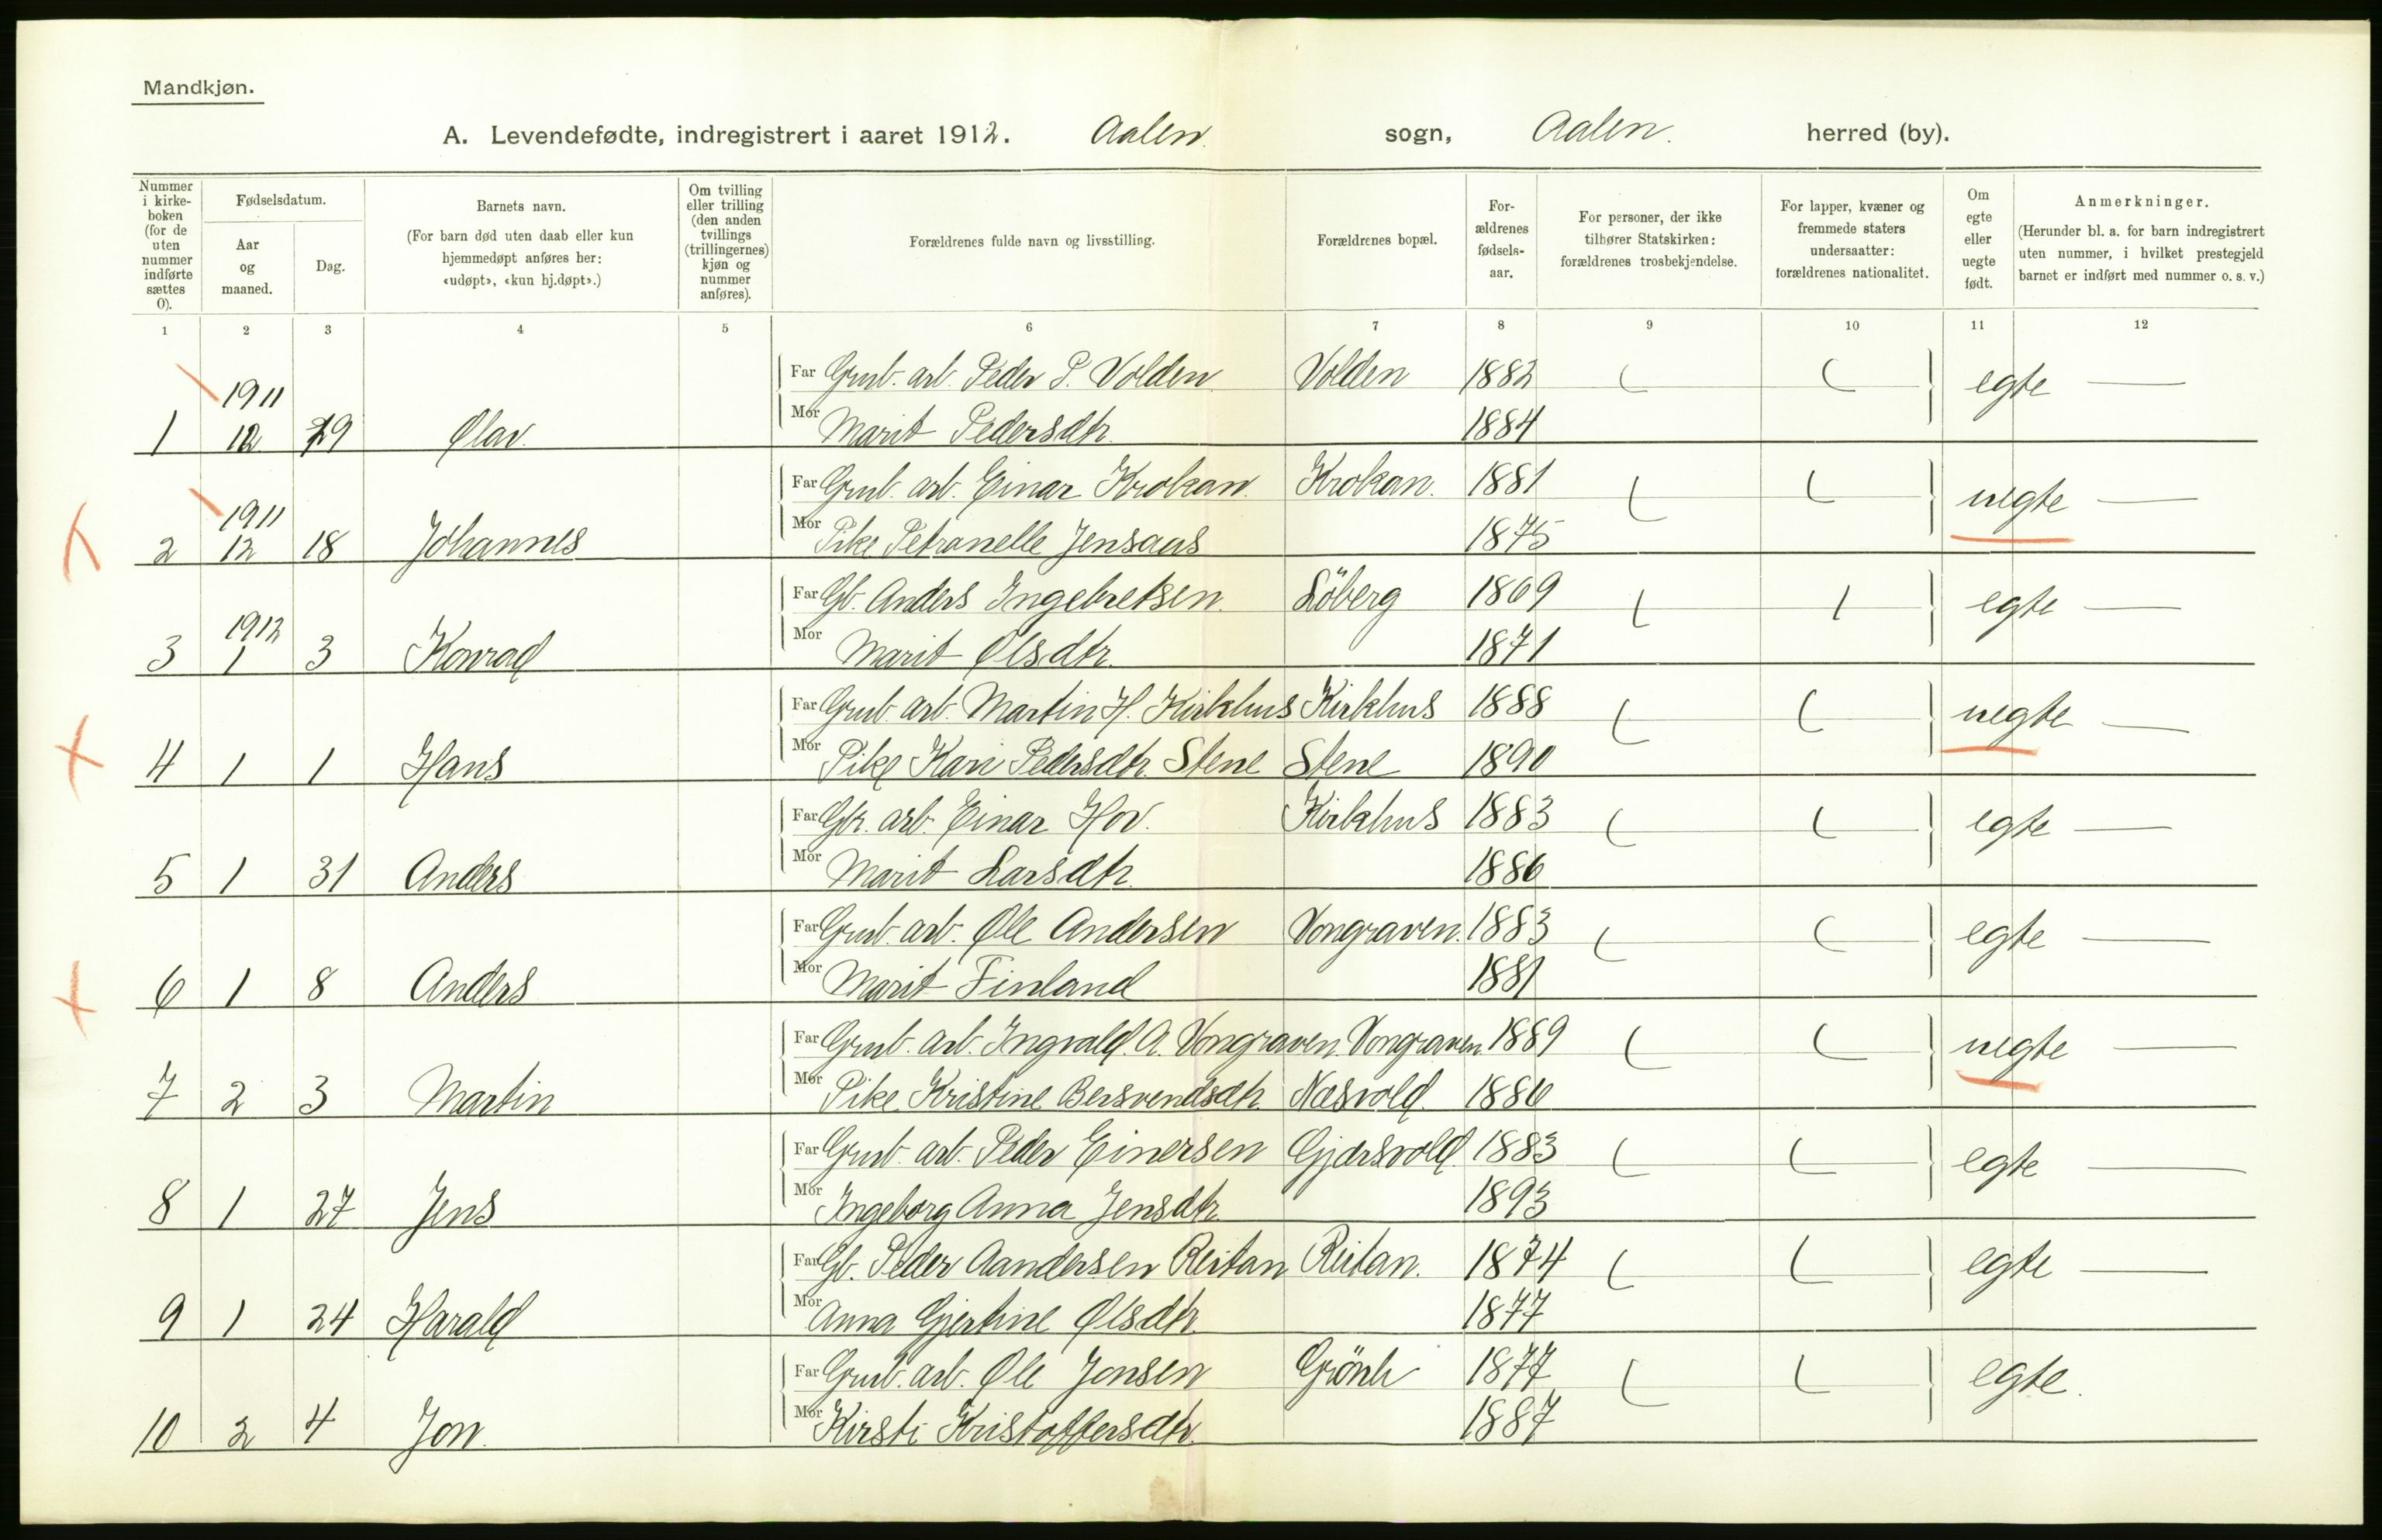 Mandkjøn.
A. Levendefødte, indregistrert i aaret 1912. Aalen sogn, Aalen. herred (by).
Nummer i kirkeboken (for de uten nummer indførte sættes 0).
Fødselsdatum.
Aar og maaned.
Dag.
Barnets navn.
(For barn død uten daab eller kun hjemmedøpt anføres her: «udøpt», «kun hj.døpt».)
Om tvilling eller trilling (den anden tvillings (trillingernes) kjøn og nummer anføres).
Forældrenes fulde navn og livsstilling.
Forældrenes bopæl.
Forældrenes fødselsaar.
For personer, der ikke tilhører Statskirken: forældrenes trosbekjendelse.
For lapper, kvæner og fremmede staters undersaatter: forældrenes nationalitet.
Om egte eller uegte født.
Anmerkninger.
(Herunder bl. a. for barn indregistrert uten nummer, i hvilket prestegjeld barnet er indført med nummer o. s. v.)
1 2 3 4 5 6 7 8 9 10 11 12
1911 Far Grub. arb. Peder P. Volden Volden 1882 egte —
1 12 29 Olav. Mor Marit Pedersdtr. 1884
1911 Far Grub. arb. Einar Krokan. Krokan. 1881 uegte —
2 12 18 Johannes Mor Pike Petranelle Jensaas 1875
1912 Far Gb. Anders Ingebretsen. Löberg 1869 egte —
3 1 3 Konrad Mor Marit Olsdtr. 1871
Far Grub. arb. Martin H. Kirkhus Kirkhus 1888 uegte —
4 1 1 Hans Mor Pike Kari Pedersdtr. Stene Stene 1890
Far Gr. arb. Einar Hov. Kirkhus 1883 egte —
5 1 31 Anders Mor Marit Larsdtr. 1886
Far Grub. arb. Ole Andersen Vongraven. 1883 egte —
6 1 8 Anders Mor Marit Finland 1881
Far Grub. arb. Ingvald A. Vongraven. Vongraven 1889 uegte —
7 2 3 Martin Mor Pike Kristine Bersvendsdtr. Næsvold. 1886
Far Grub. arb. Peder Einersen Gjærsvold. 1883 egte —
8 1 27 Jens Mor Ingeborg Anna Jensdtr. 1893
Far Gb. Peder Aandersen Reitan Reitan. 1874 egte —
9 1 24 Harald Mor Anna Gjertine Olsdtr. 1877
Far Grub. arb. Ole Jonsen 1877 egte.
10 2 4 Jon. Mor Kirsti Kristoffersdtr. 1887